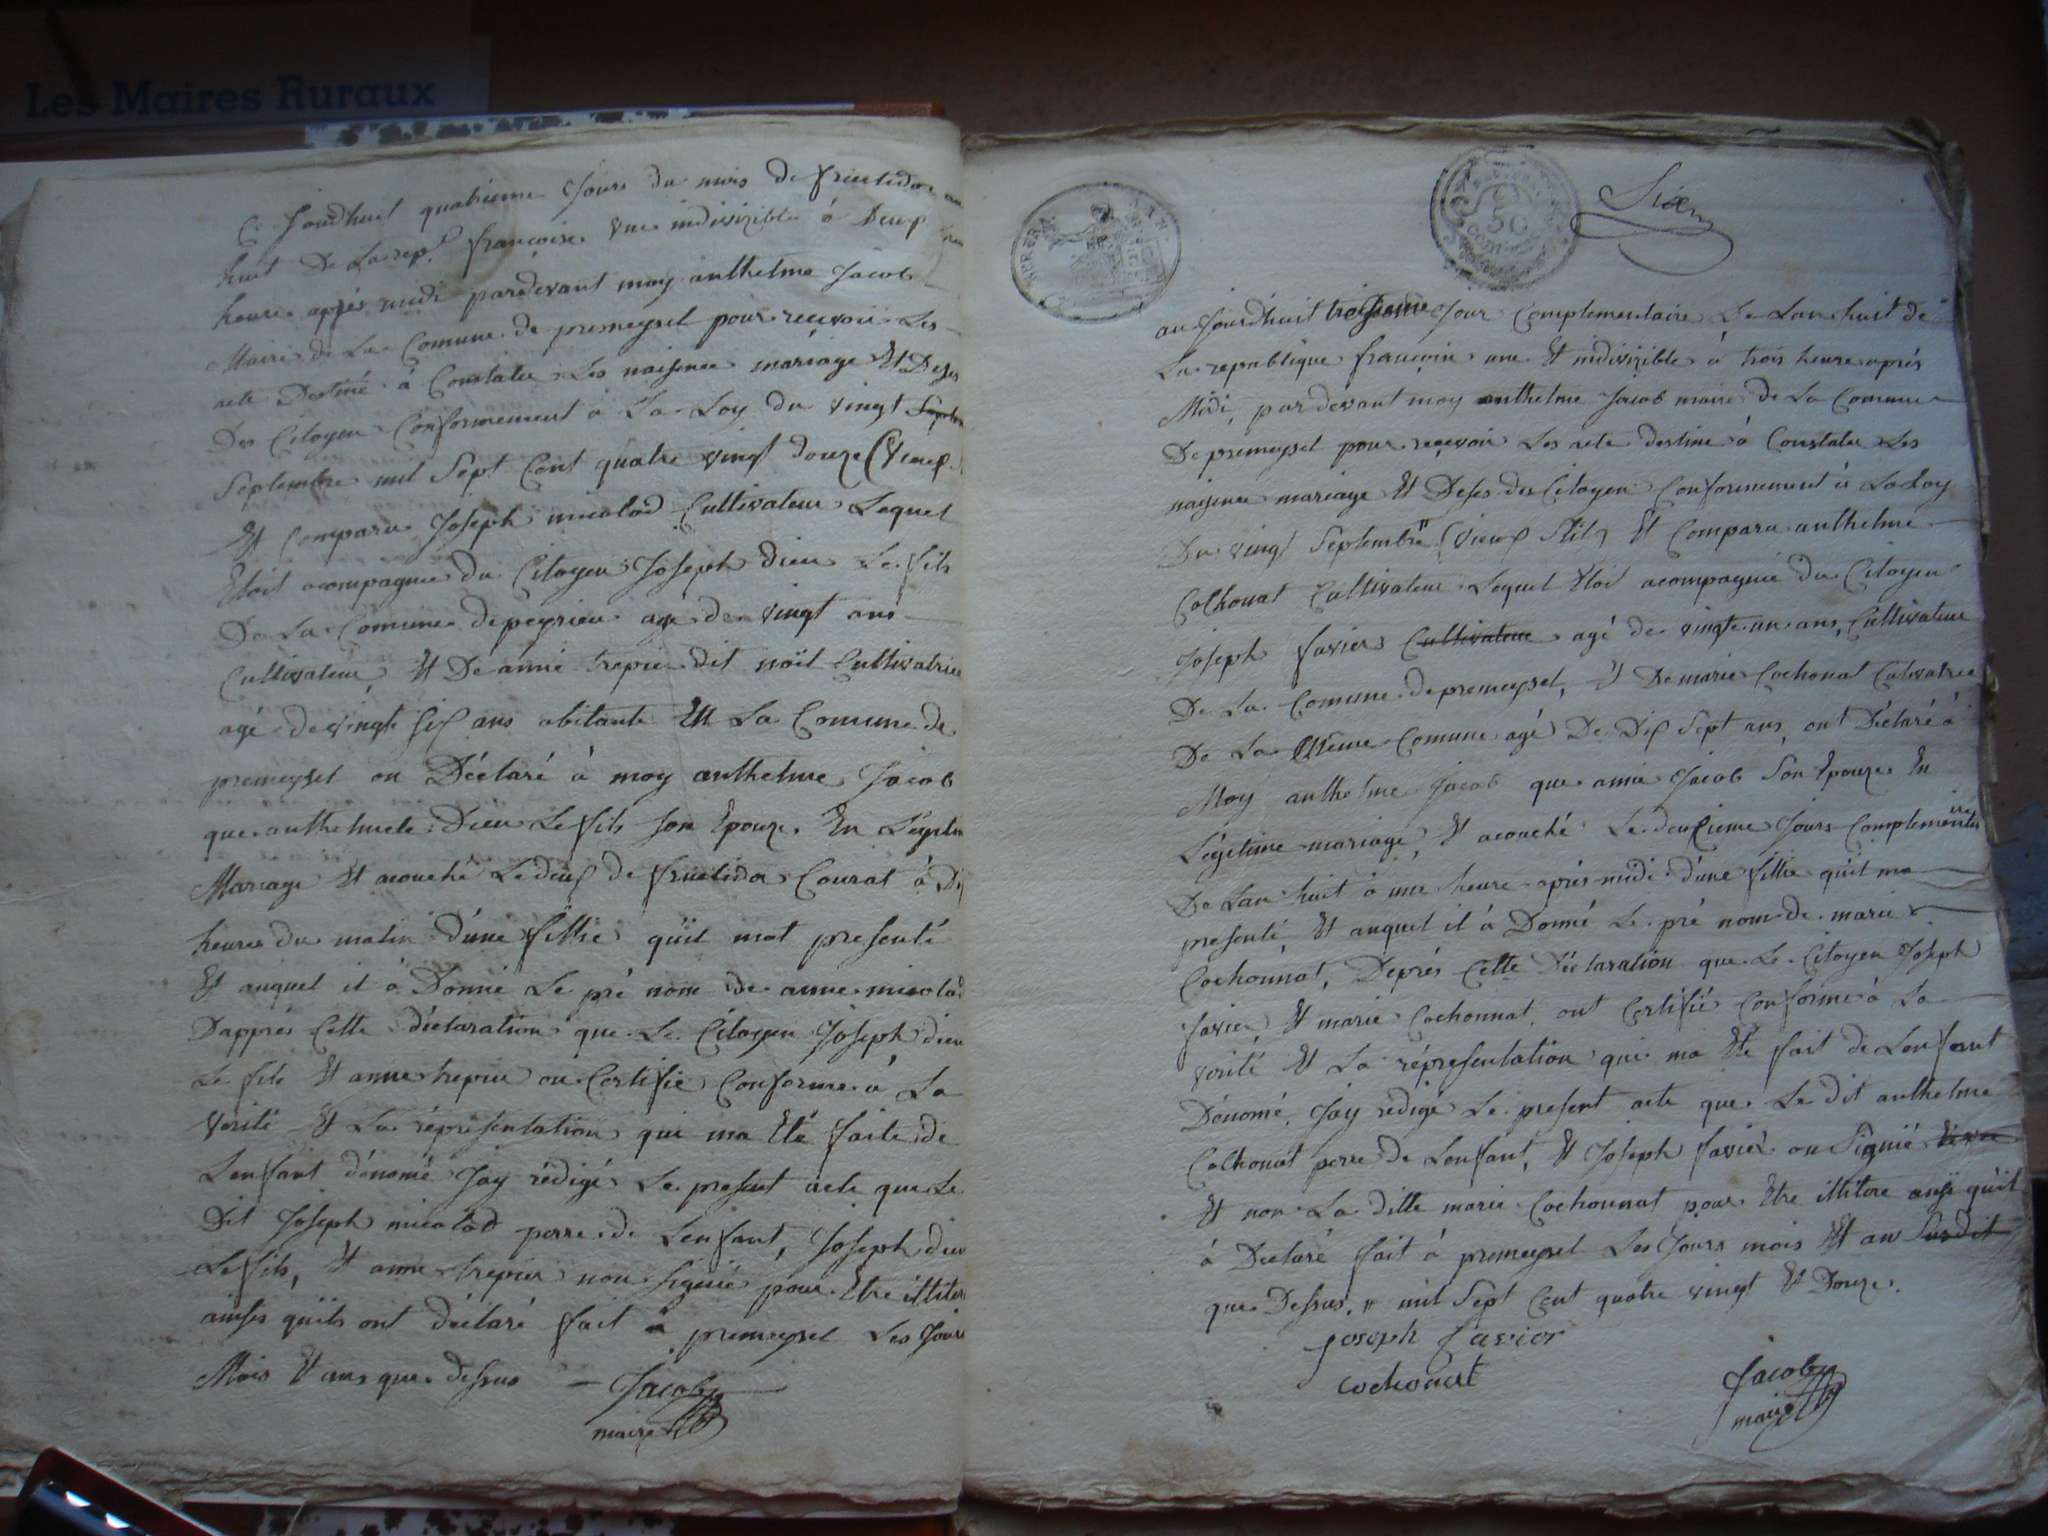 Les Maires Ruraux
Ce Jourdhuit quatrieme Jours du mois de fructidor an
huit De La rep. françoise une indivizible à Deux
heure après midi pardevant moy anthelme Jacob
Maire de La Comune de premeysel pour recevoir Les
acte Destiné à Constater Les naisence mariage Et Desès
Des Citoyen Conformement à La Loy du vingt
Septembre mil Sept Cent quatre vingt douze (vieux
Et Comparu Joseph micolod Cultivateur Lequel
Etoit acompagnee du Citoyen Joseph dieu Le fils
De La Comune depeyrieu age de vingt ans
Cultivateur Et De anne trepier dit noït Cultivatrice
agé de vingt six ans abitante En La Comune de
premeysel on Déclaré à moy anthelme Jacob
que anthelmete Dieu Le fils Son Epouze En Legitm
Mariage Et acouché Le deux de fructidor Courat à Dix
heures du matin d'une fillie qu'il mat presenté
Et auquel il à Donné Le pré nom de anne micolod
Dapprès Cette déclaration que Le Citoyen Joseph dieu
Le fils Et anne trepier on Certifie Conforme à La
verité Et La réprésentation qui ma Eté faite de
Lenfant dénomé Jay rédigé Le présent acte que Le
Dit Joseph micolod perre de Lenfant, Joseph dieu
Le fils, Et anne trepier non signiée pour Etre illiter
ainses qu'ils ont déclaré fait à premeysel Les Jours
Mois Et ans que dessus Jacob
maire
Six
50
au Jourdhuit troisieme Jour Complementaire De Lan huit de
La republique françoise une Et indivizible à trois heure après
Midi, pardevant moy anthelme Jacob maire de La Comune
De premeysel pour recevoir Les acte destiné à Constater Les
naisence mariage Et Desès des Citoyen Conformement à La Loy
Du vingt Septembre (vieux Stile Et Comparu anthelme
Cochonat Cultivateur Lequel Etoit acompagnié du Citoyen
Joseph favier Cultivateur agé de vingt un ans, Cultivateur
De La Comune de premeysel, Et De marie Cochonat Cultivatrice
De La Même Comune agé De Dix Sept ans, ont Déclaré à
Moy anthelme Jacob que annie Jacob Son Epouze En
Légitime mariage, Et acouché Le deuxieme Jours Complementaires
De Lan huit à une heure après midi d'une fillie qu'il ma
presenté Et auquel il à Donné Le pré nom de marie
Cochonnat, Deprès Cette Déclaration que Le Citoyen Joseph
favier Et marie Cochonnat ont Certifié Conforme à La
verité Et La réprésentation qui ma Eté fait de Lenfant
Dénomé Jay redigé Le present acte que Le Dit anthelme
Cochonat perre de Lenfant, Et Joseph favier on Signié
Et non La ditte marie Cochonnat pour Etre illitere ansi qu'il
à Déclaré fait à premeysel Les Jours mois Et an Susdit
que Dessus. " mil Sept Cent quatre vingt Et Douze.
joseph favier
cochonat
Jacob
maire